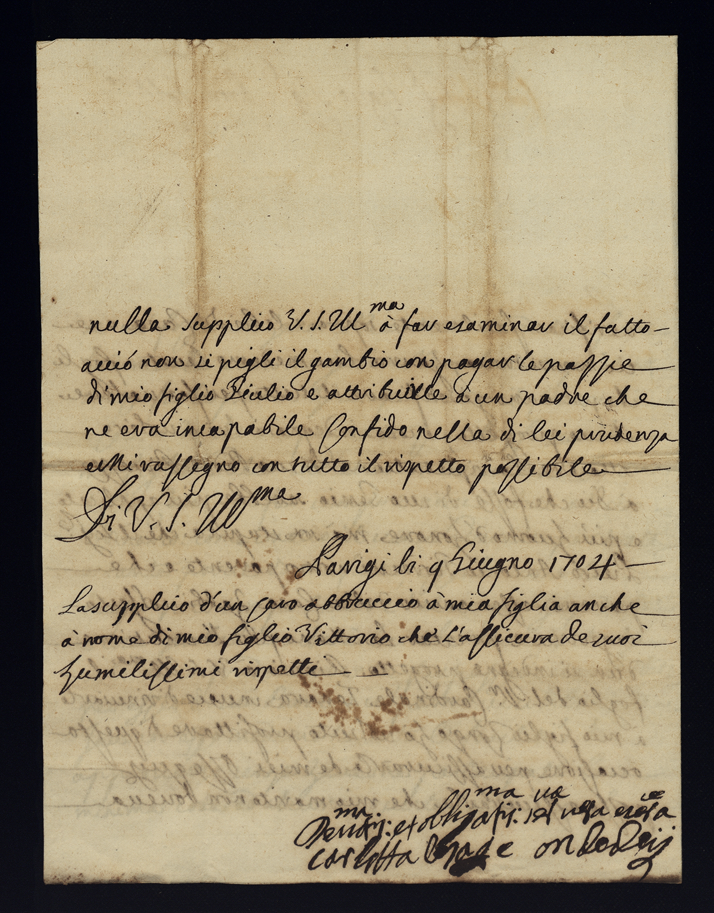 nulla supplico V. S. Ill^ma à far esaminar il fatto-
acciò non si pigli il gambio con pagar le passie
di mio figlio Giulio e attribuille a un padre che
ne era incapabile Confido nella di lei prudenza
e Mi rassegno con tutto il rispetto possibile
Di V. S. Ill^ma
Parigi li 9 Giugno 1704
La supplico d'un caro abbraccio à mia figlia anche
à nome di mio figlio Vittorio che L'assicura de suoi
humilissimi rispetti
Devotis:^ma et obligatis:^ma ser^va
Carlotta ondedeij